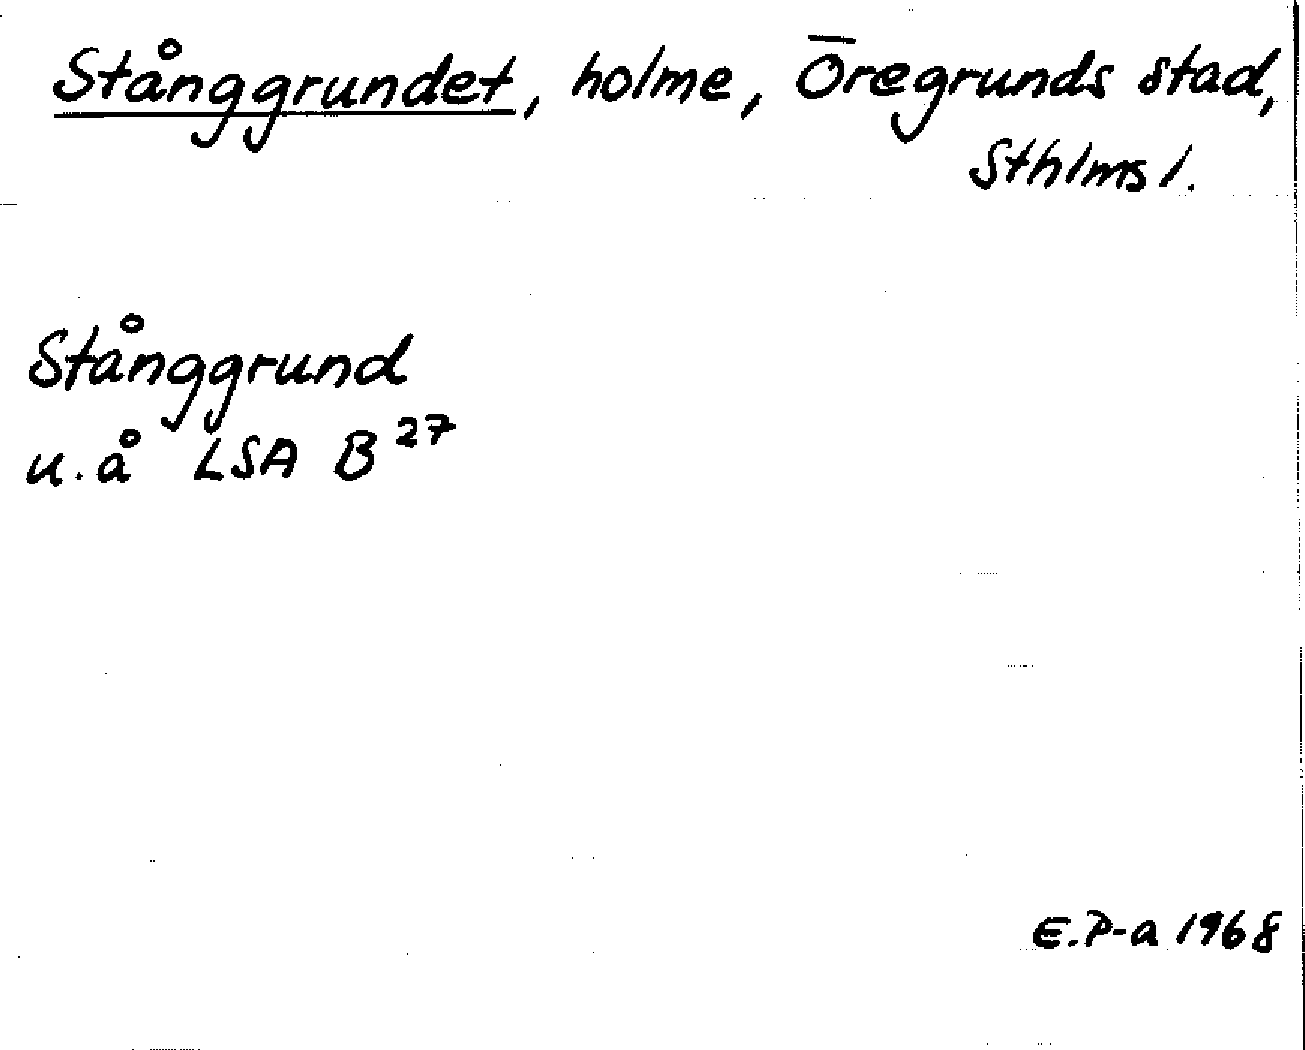 Stånggrundet, holme, Öregrunds stad,
Sthlms l.
Stånggrund
u.å LSA B 27
E.P-a 1968